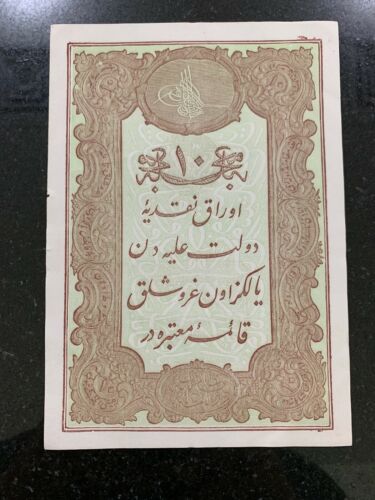 ١٠
اوراق نقدیهٔ
دولت علیه دن
یالکز اون غروشلق
قائمهٔ معتبره در